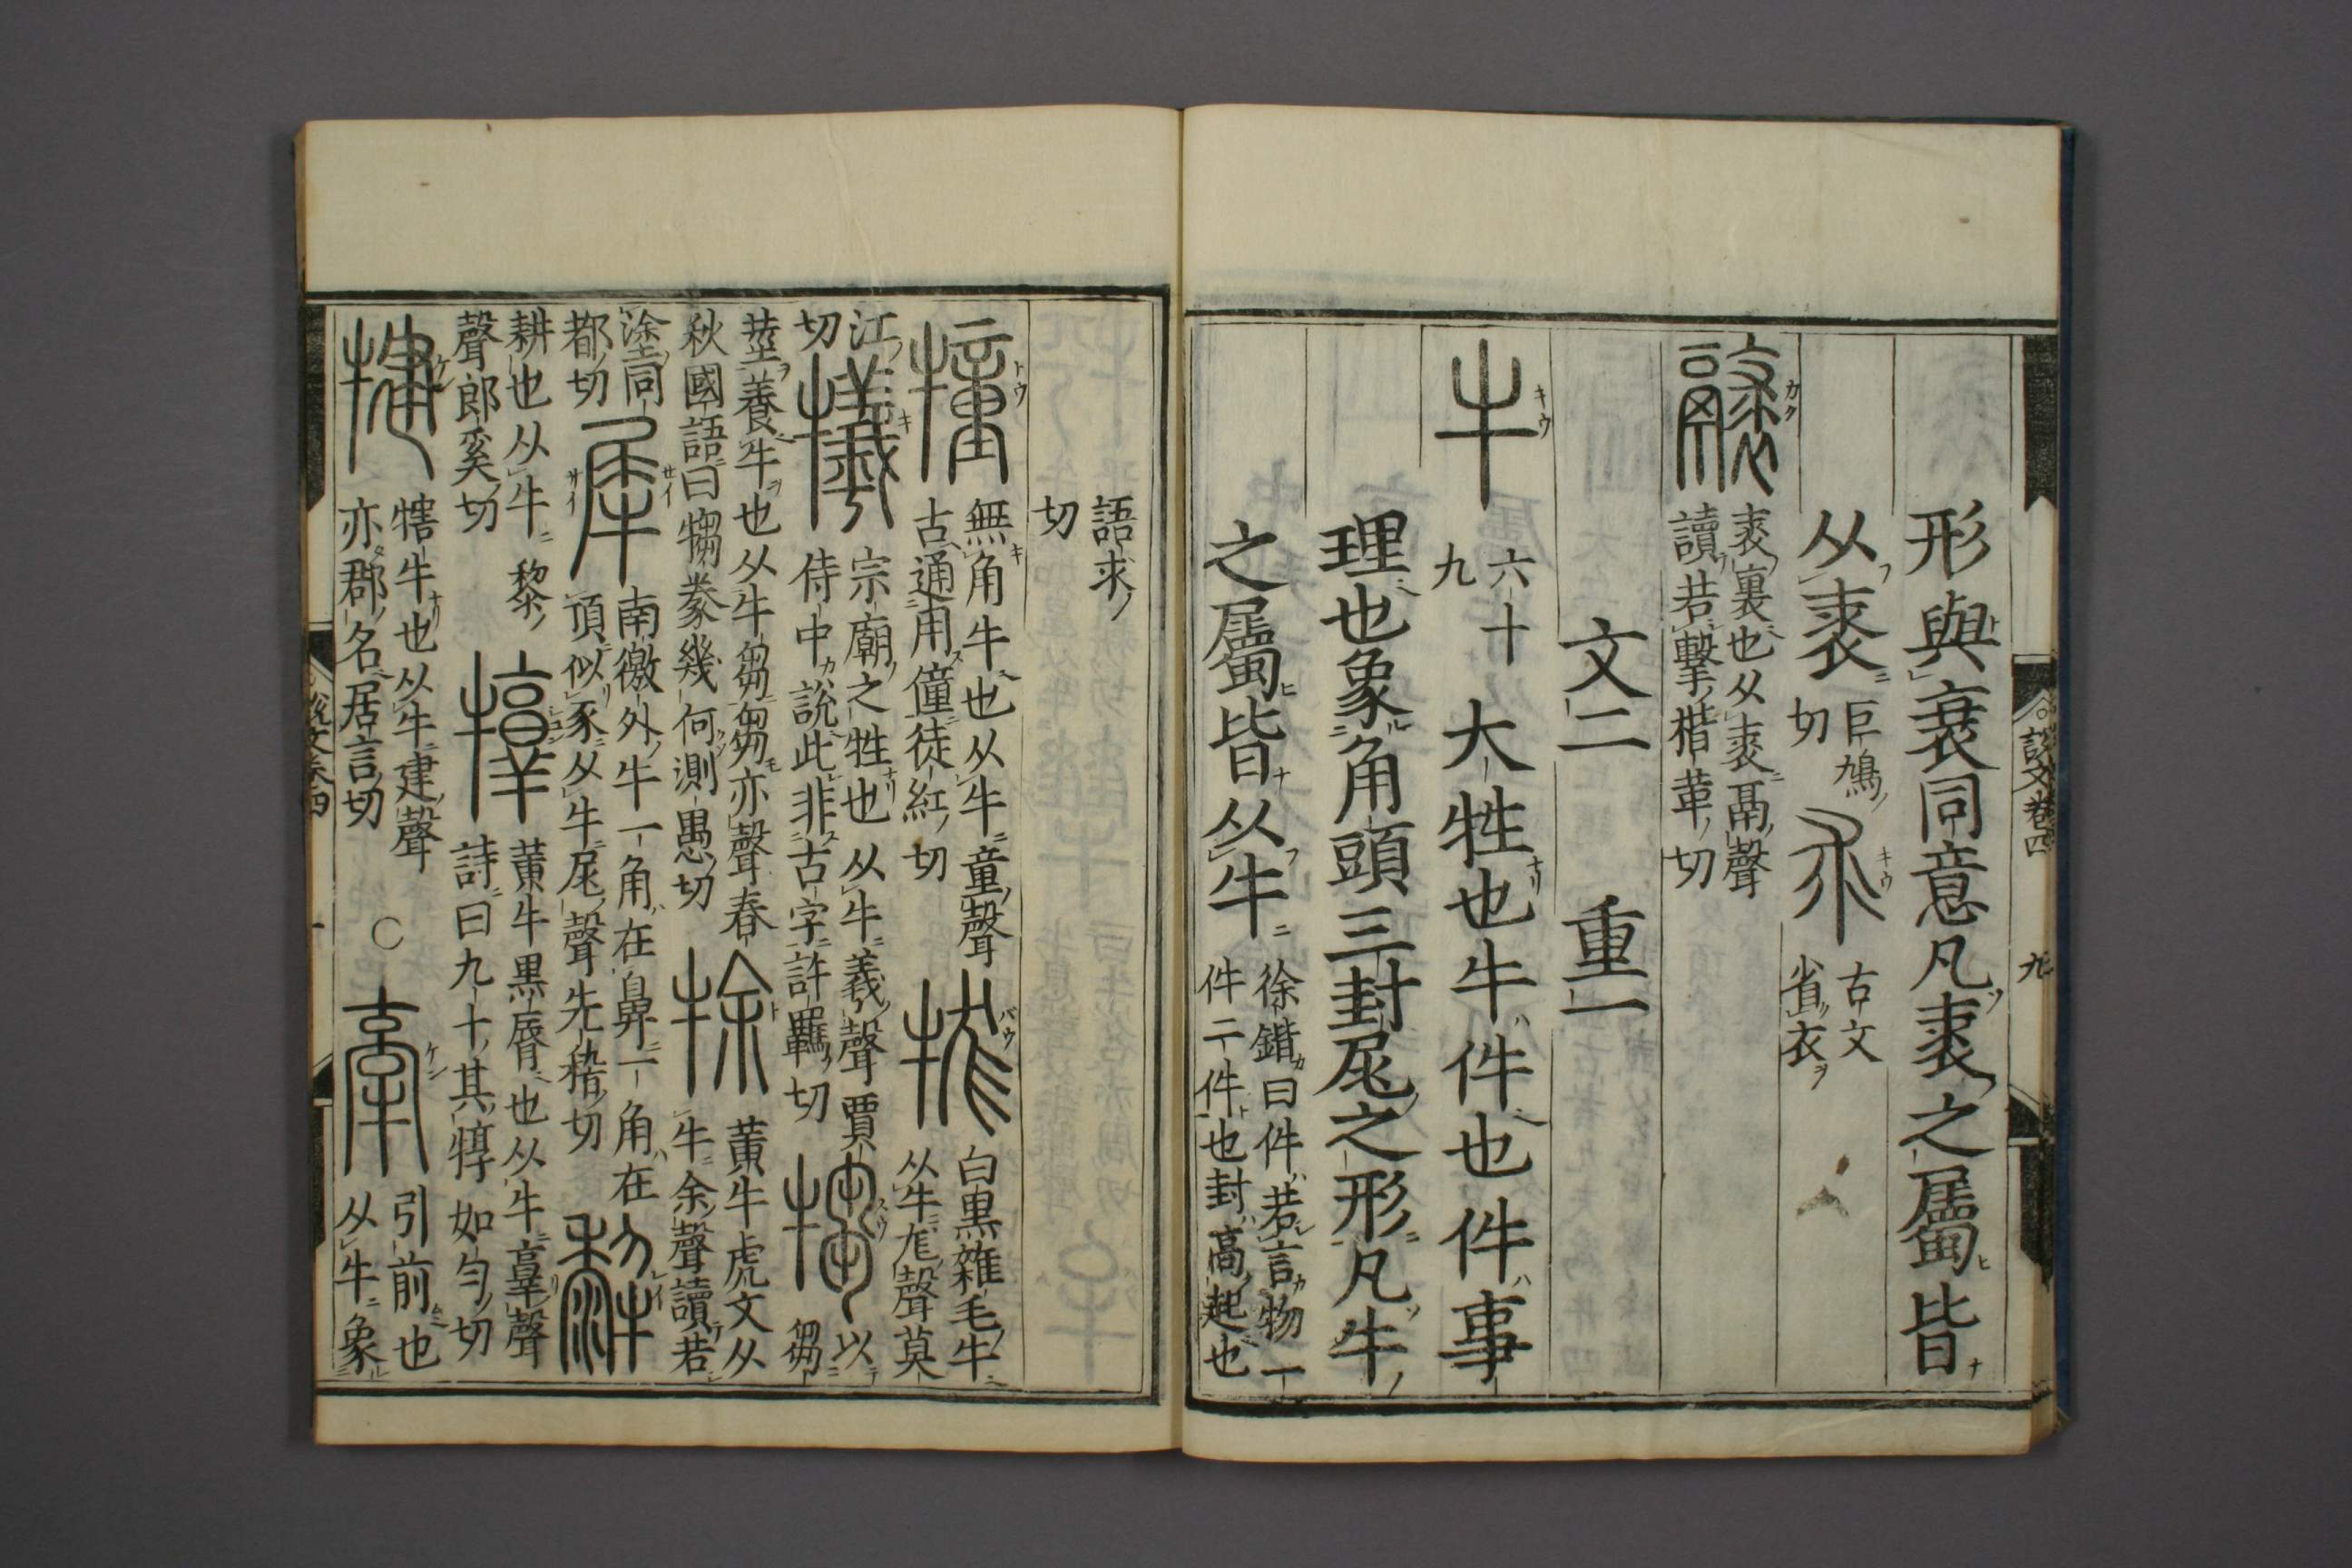 形與衰同意凡裘之屬皆
从裘
巨鳩
切
古文
省衣
裘裏也从裘鬲聲
讀若擊楷革切
文二 重一
牛
六十
九
大牲也牛件也件事
理也象角頭三封尾之形凡牛
之屬皆从牛
徐鍇曰件若言物一
件二件也封高起也
說文卷四 九
語求
切
犝
無角牛也从牛童聲
古通用僮徒紅切
牻
白黒雜毛牛
从牛尨聲莫
江
切
犧
宗廟之牲也从牛羲聲賈
侍中說此非古字許羈切
犓
以芻
莝養牛也从牛芻芻亦聲春
秋國語曰犓豢幾何測愚切
㻌
黄牛虎文从
牛余聲讀若
塗同
都切
犀
南徼外牛一角在鼻一角在
頂似豕从牛尾聲先稽切
耕也从牛黎
聲郎奚切
犉
黄牛黒脣也从牛𦎧聲
詩曰九十其犉如匀切
犍
犗牛也从牛建聲
亦郡名居言切
○
牽
引前也
从牛象